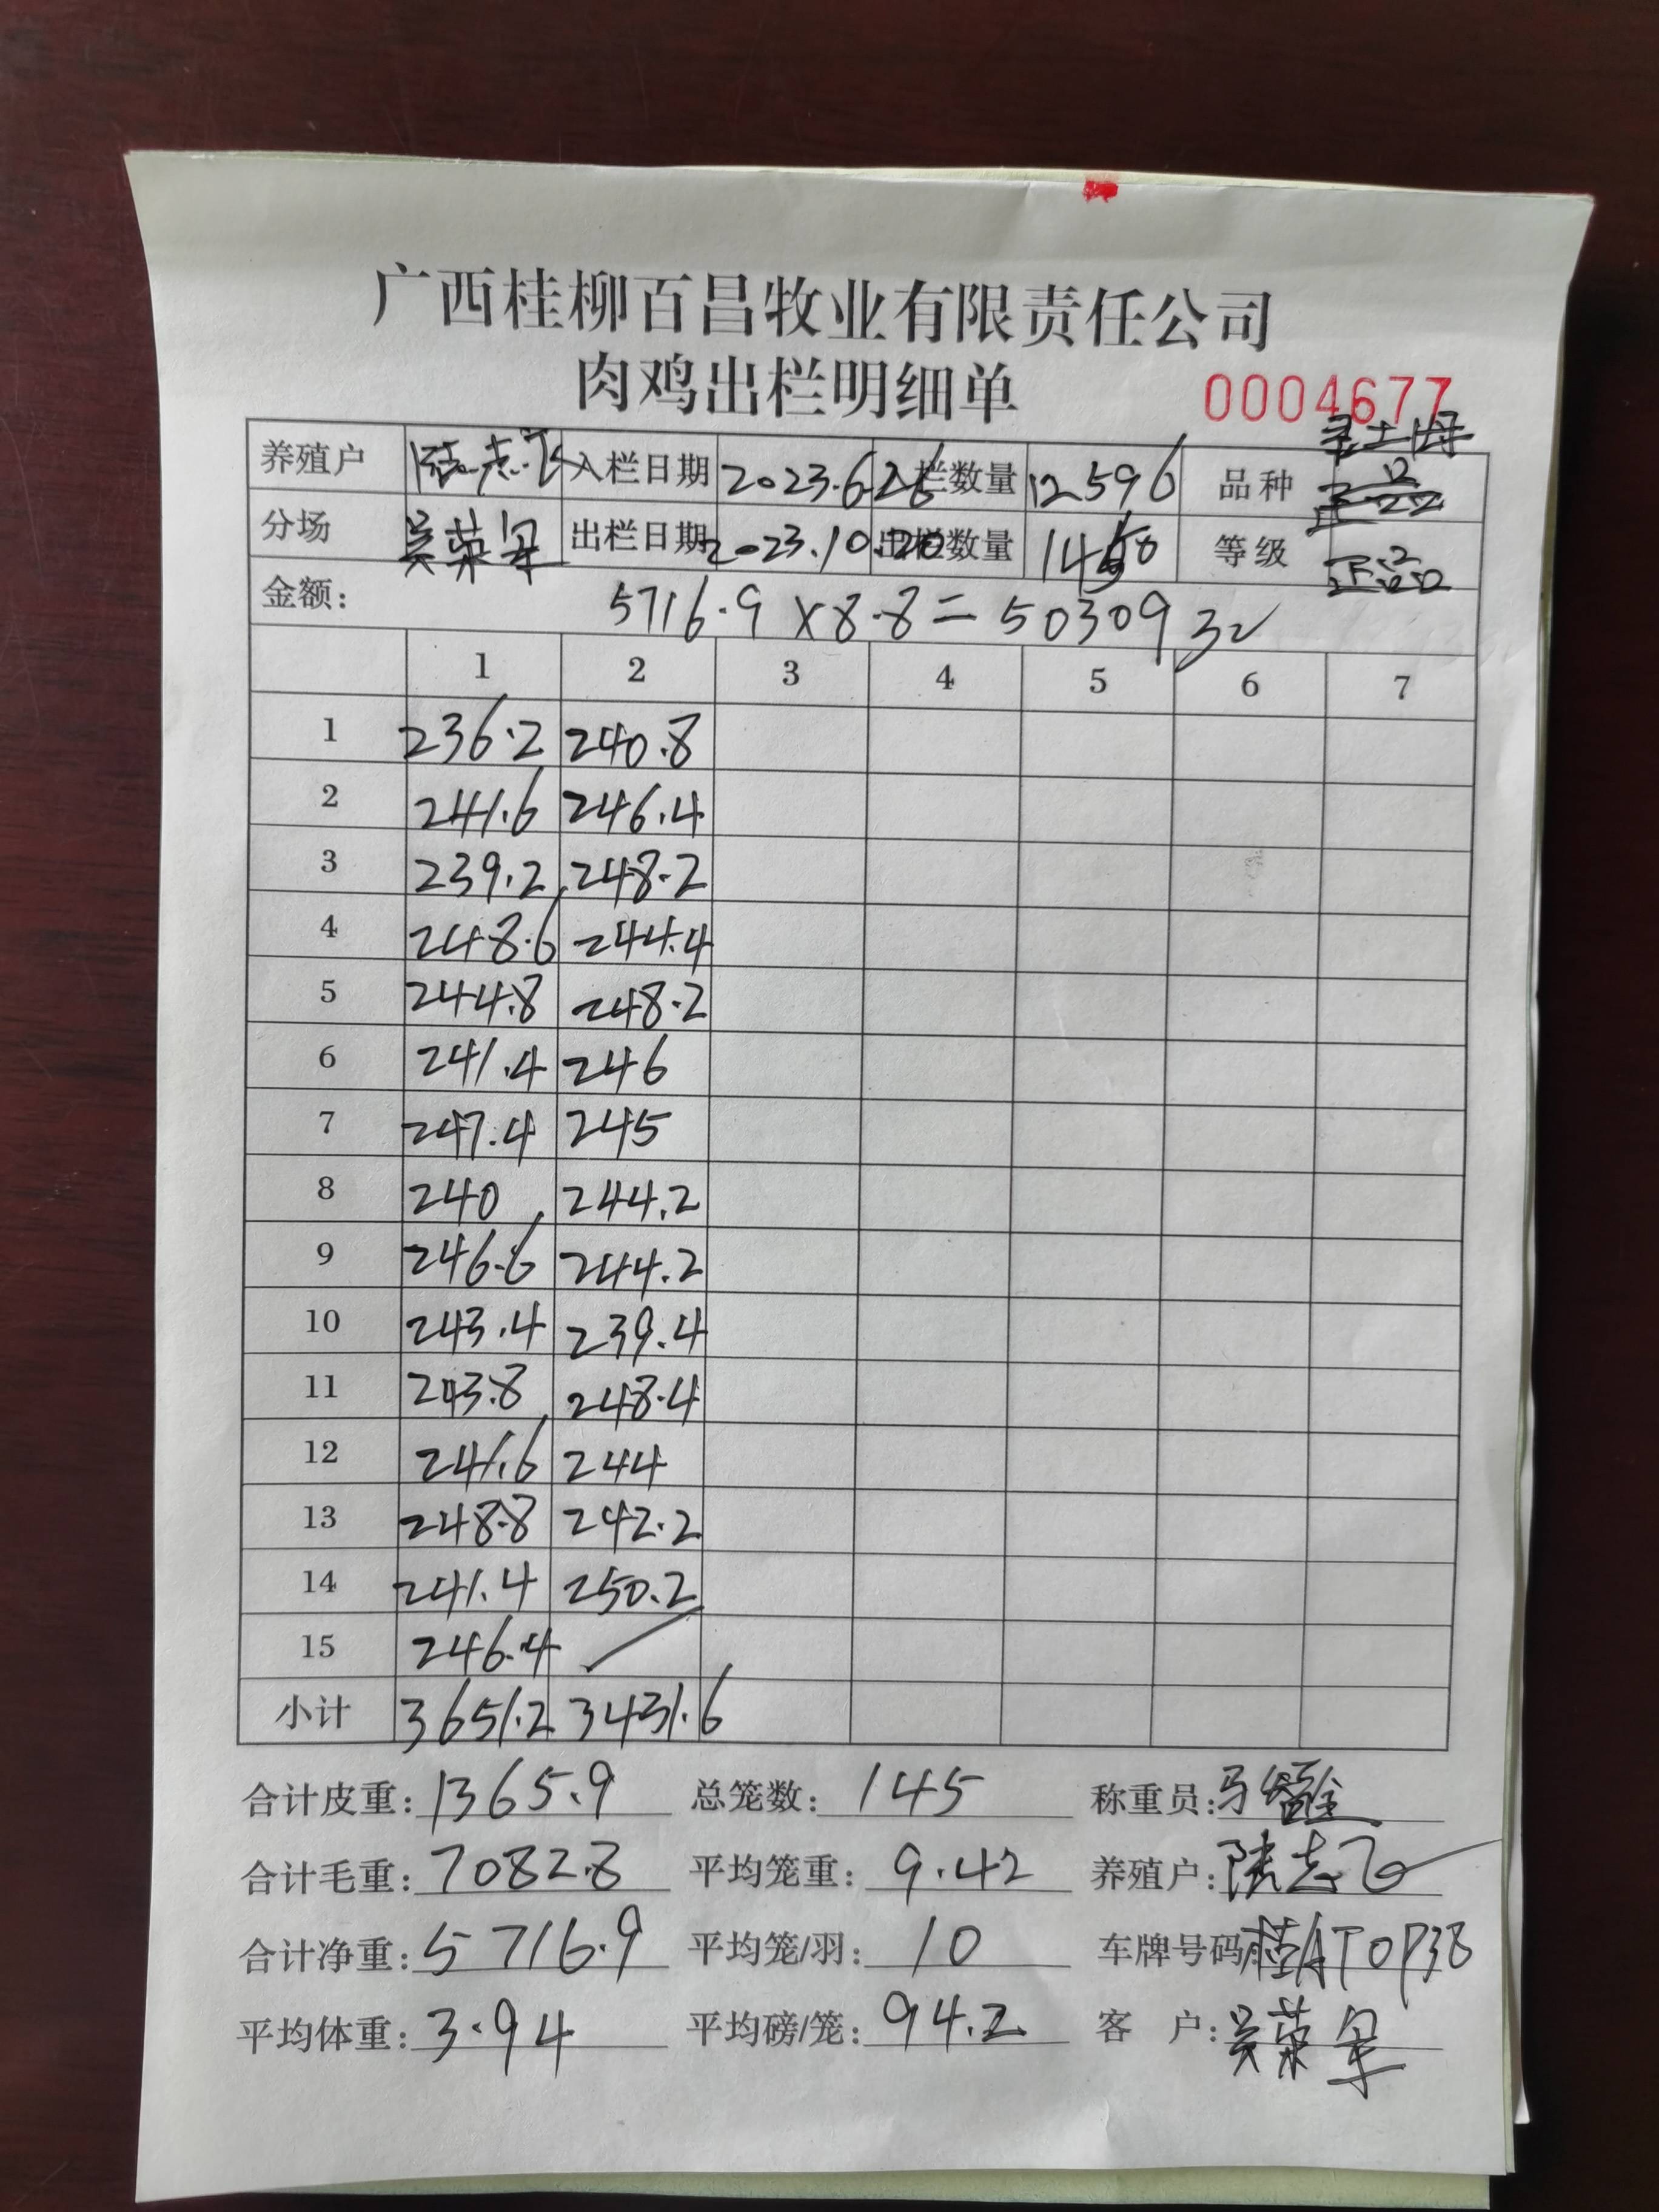 广西桂柳百昌牧业有限责任公司
肉鸡出栏明细单
0004677
养殖户 陆志飞 入栏日期 2023.6.26 栏数量 12596 品种 土
分场 吴荣军 出栏日期 2023.10.20 出栏数量 1450 等级 正品
金额: 5716.9×8.8=50309 32
1 2 3 4 5 6 7
1 236.2 240.8
2 241.6 246.4
3 239.2 248.2
4 248.6 244.4
5 244.8 248.2
6 241.4 246
7 247.4 245
8 240 244.2
9 246.6 244.2
10 243.4 239.4
11 243.8 248.4
12 241.6 244
13 248.8 242.2
14 241.4 250.2
15 246.4
小计 3651.2 3431.6
合计皮重: 1365.9 总笼数: 145 称重员: 马
合计毛重: 7082.8 平均笼重: 9.42 养殖户: 陆志飞
合计净重: 5716.9 平均笼/羽: 10 车牌号码 桂AT0P38
平均体重: 3.94 平均磅/笼: 94.2 客 户: 吴荣军